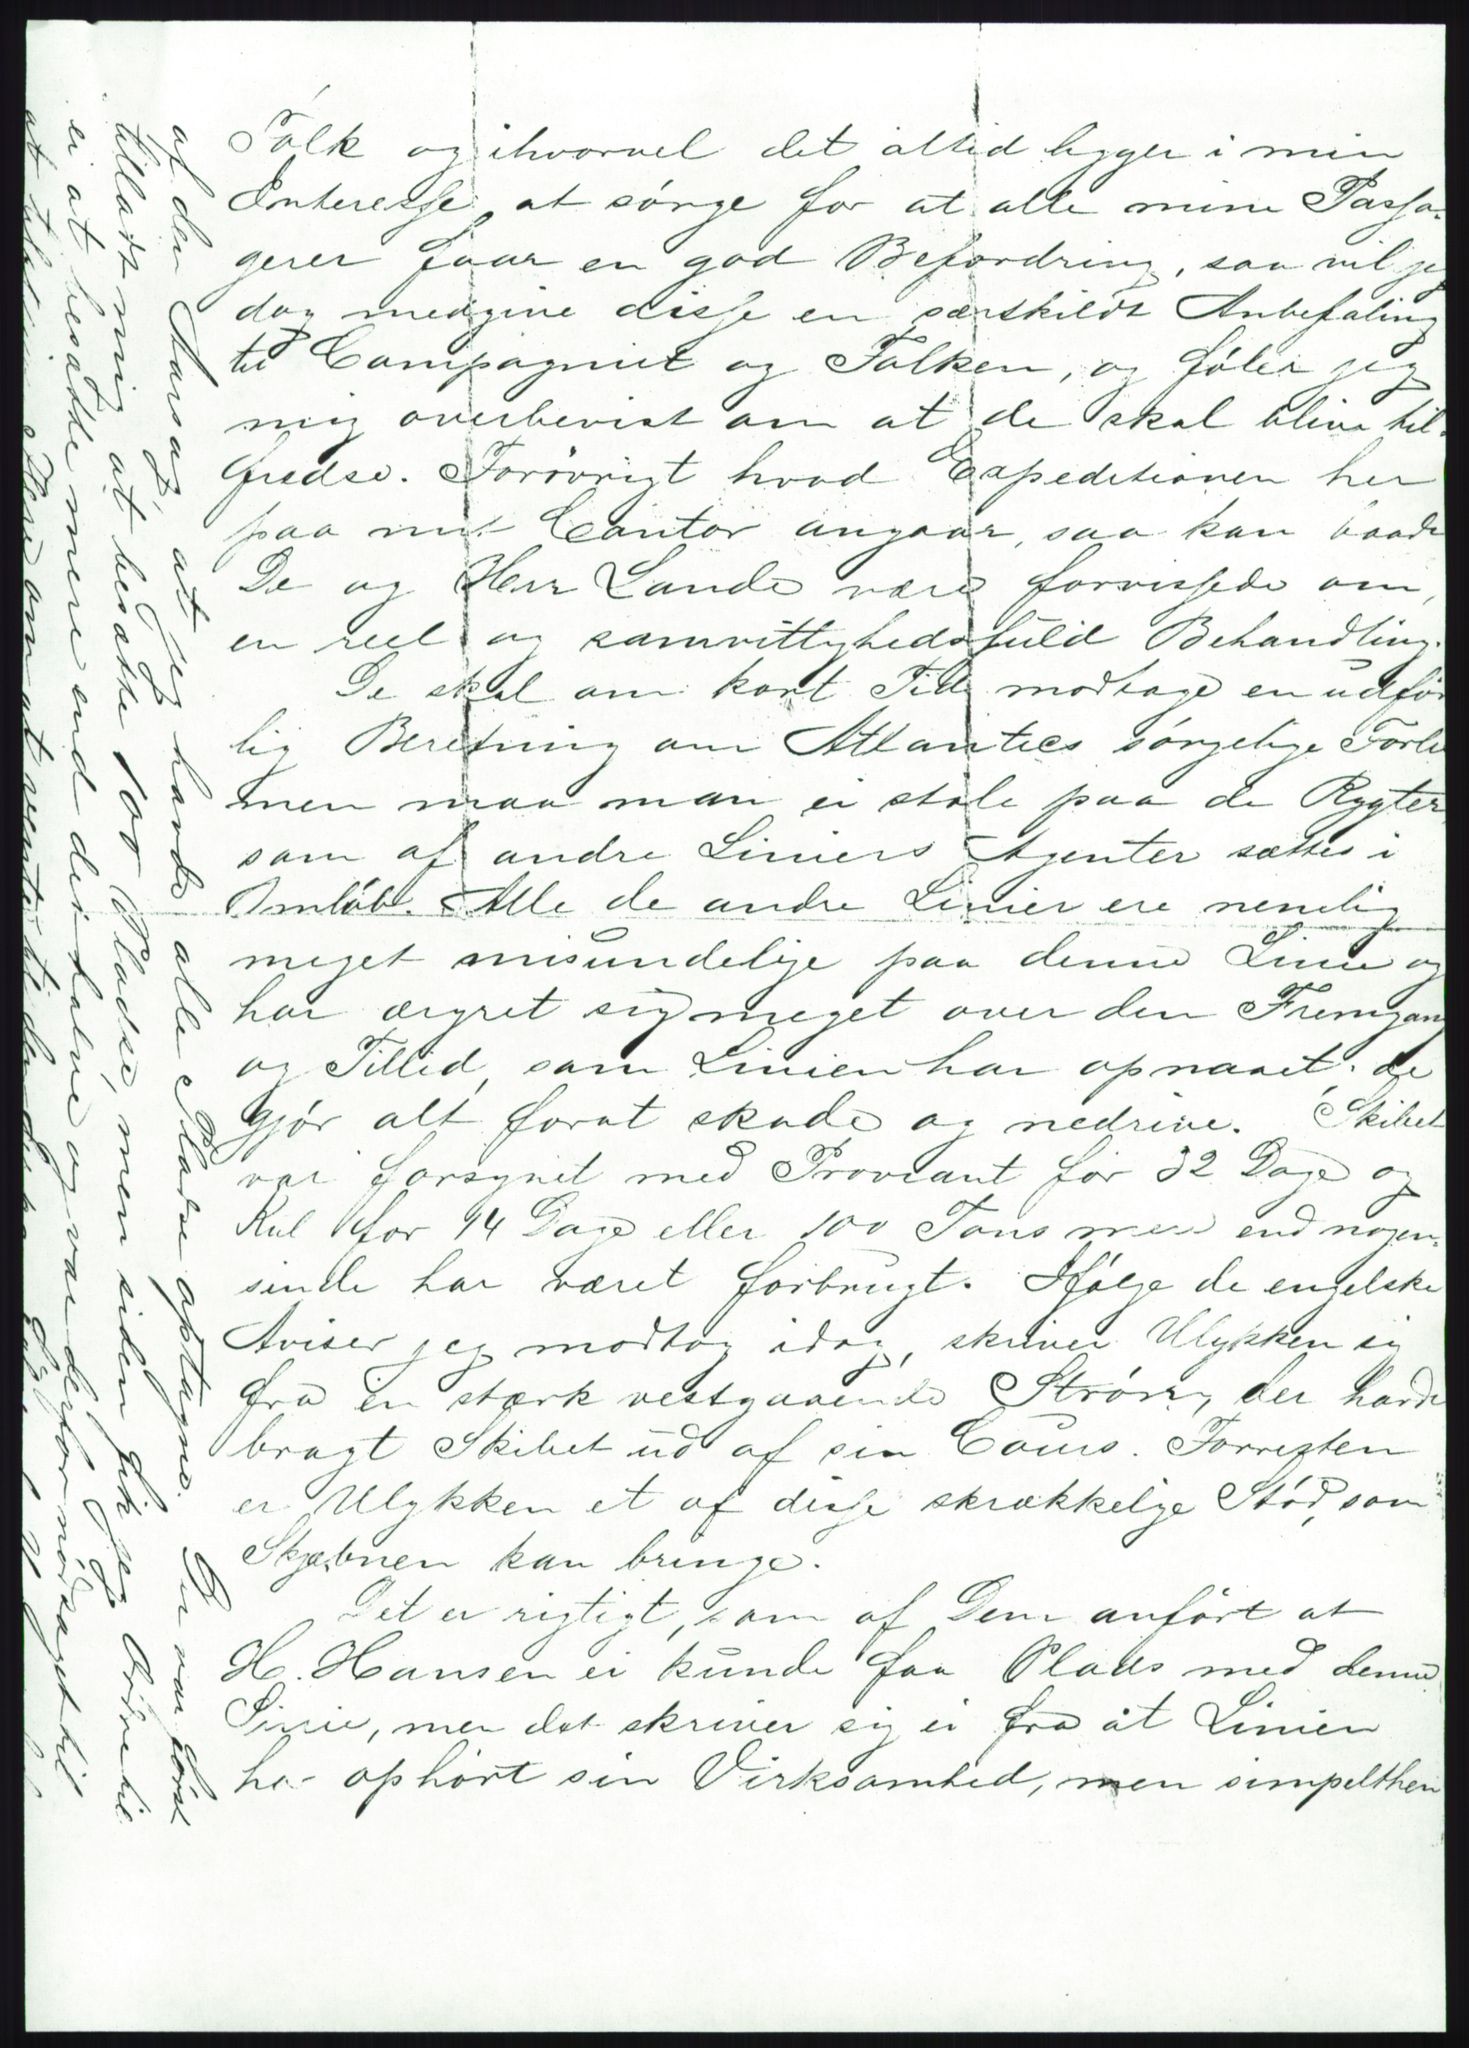 Folk og ihvorvel det altid ligger i min
Interesse at sørge for at alle mine Passa-
gerer faar en god Befordring, saa vil jeg
dog medgive disse en særskildt Anbefaling
til Compagniet og Tolken, og føler jeg
mig overbevist om at de skal blive til-
fredse. Forøvrigt hvad Expeditionen her
paa mit Contor angaar, saa kan baade
De og Herr Lande være forvissede om,
en reel og samvittyghedsfuld Behandling.
De skal om kort Tid modtage en udfør
lig Beretning om Atlantics sørgelige Forli
men maa man ei stole paa de Rygter
som af andre Liniers Agenter sættes i
Omløb. Alle de andre Linier ere nemlig
meget misundelige paa denne Linie og
har ærgret sig meget over den Fremgang
og Tillid, som Linien har opnaaet, de
gjør alt forat skade og nedrive. Skibet
var forsynet med Proviant for 32 Dage og
Kul for 14 Dage eller 100 Tons mere end nogen-
sinde har været forbrugt. Ifølge de engelske
Aviser jeg modtog idag, skriver Ulykken sig
fra en stærk vestgaaende Strøm, der havde
bragt Skibet ud af sin Cours. Forresten
er Ulykken et af disse skrækkelige Stød, som
Skjæbnen kan bringe.
Det er rigtigt, som af Dem anført at
H. Hansen ei kunde faa Plads med denne
Linie, men det skriver sig ei fra at Linien
har ophørt sin Virksomhed, men simpelthen
af den Aarsag, at jeg havde alle Pladse optagne. Der var først
tilladt mig at besætte 100 Pladse, men siden fik jeg Ordre til
ei at besætte mere end det halve og var derfor nødsaget til
at